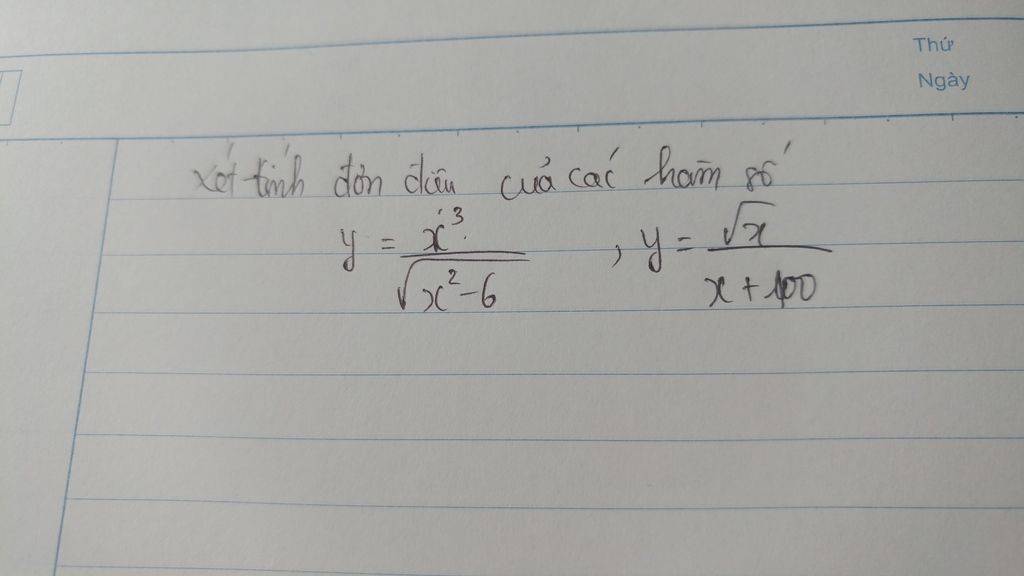 Thứ
Ngày
xét tính đơn điệu của các hàm số
y = x³ / √(x²-6) , y = √x / (x + 100)